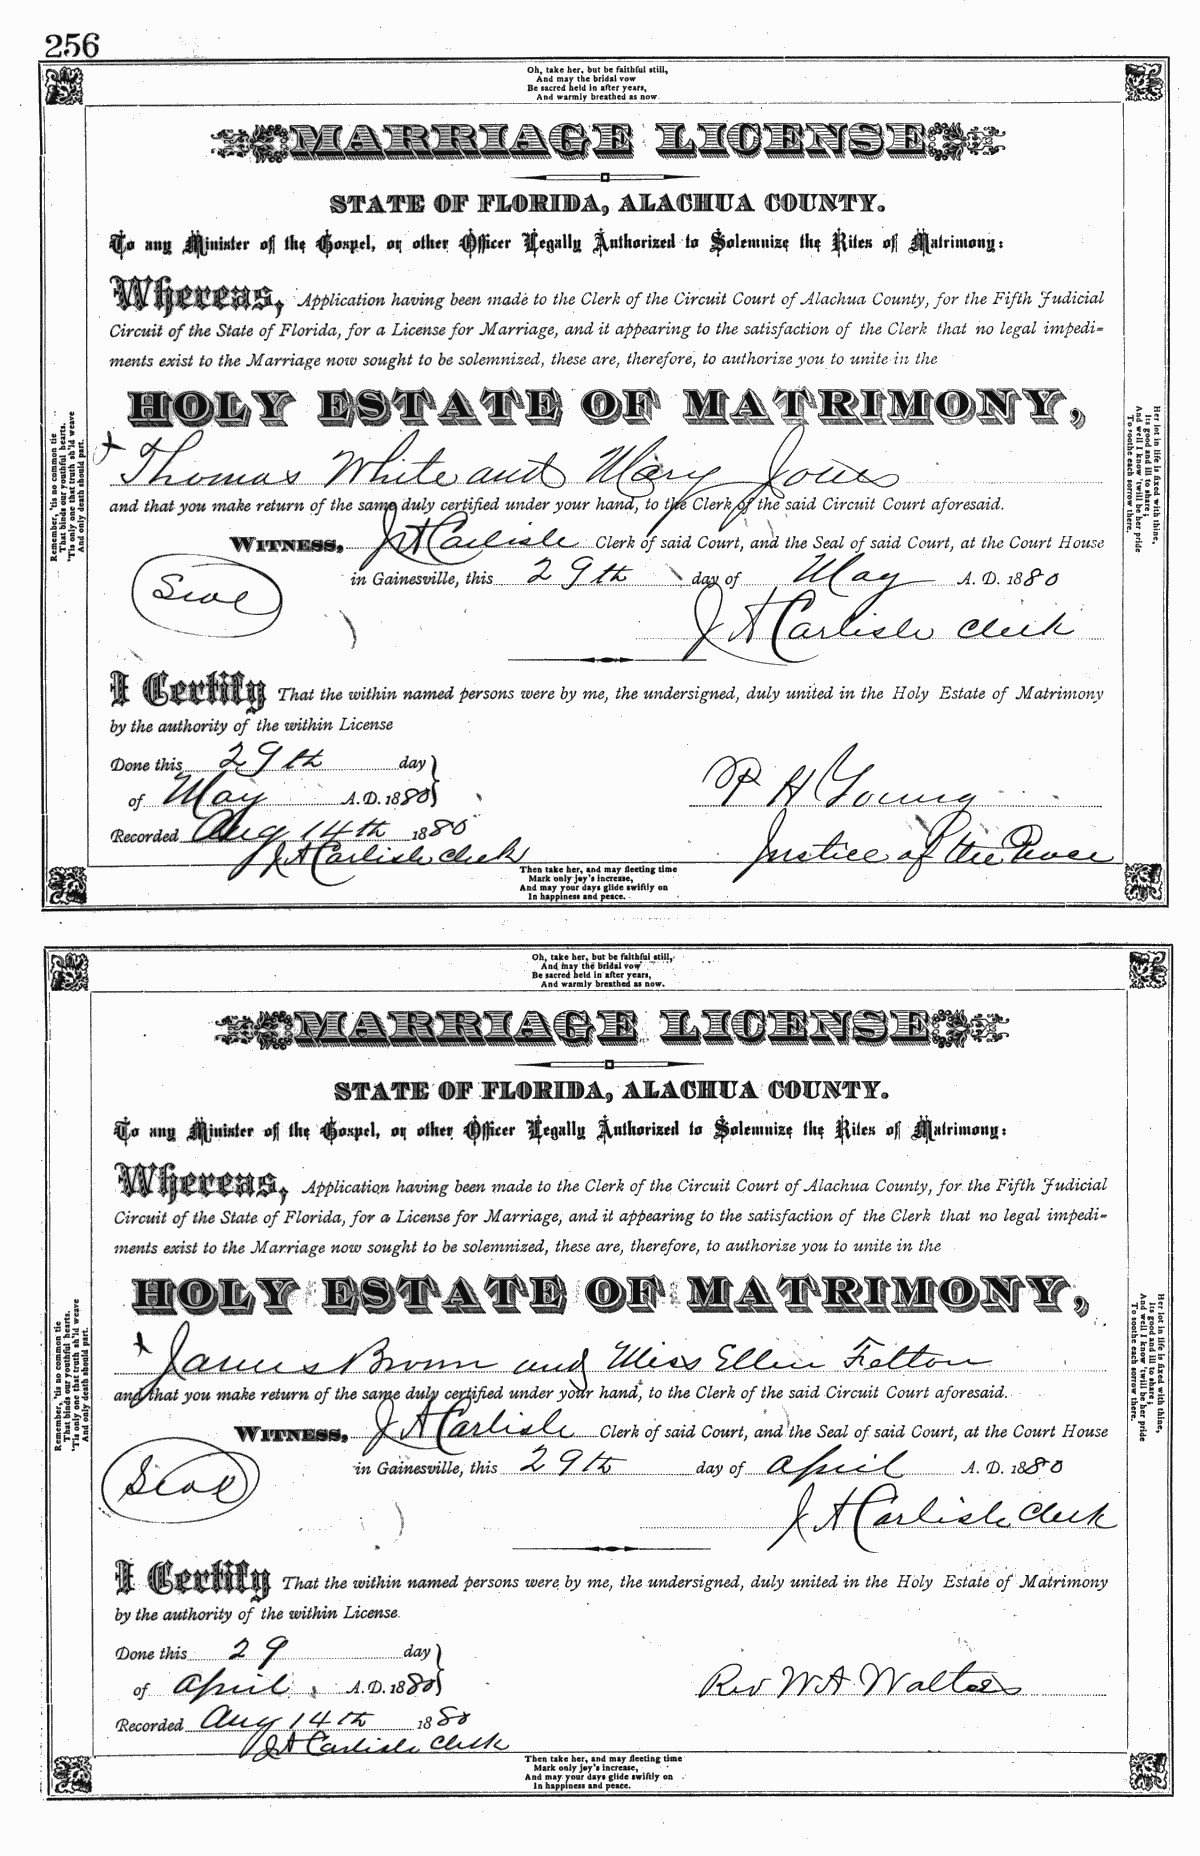 256
Oh, take her, but be faithful still,
And may the bridal vow
Be sacred held in after years,
And warmly breathed as now
MARRIAGE LICENSE
STATE OF FLORIDA, ALACHUA COUNTY.
To any Minister of the Gospel, or other Officer Legally Authorized to Solemnize the Rites of Matrimony:
Whereas, Application having been made to the Clerk of the Circuit Court of Alachua County, for the Fifth Judicial
Circuit of the State of Florida, for a License for Marriage, and it appearing to the satisfaction of the Clerk that no legal impedi-
ments exist to the Marriage now sought to be solemnized, these are, therefore, to authorize you to unite in the
HOLY ESTATE OF MATRIMONY,
Thomas White and Mary Jones
and that you make return of the same duly certified under your hand, to the Clerk of the said Circuit Court aforesaid.
WITNESS, J A Carlisle Clerk of said Court, and the Seal of said Court, at the Court House
in Gainesville, this 29th day of May A. D. 1880
Seal
J A Carlisle Clerk
I Certify That the within named persons were by me, the undersigned, duly united in the Holy Estate of Matrimony
by the authority of the within License
Done this 29th day
of May A.D. 1880
P H Young
Recorded Aug 14th 1880
J A Carlisle Clerk
Justice of the Peace
Remember, 'tis no common tie
That binds our youthful hearts.
'Tis only one that truth sh'ld weave
And only death should part.
Her lot in life is fixed with thine,
Its good and ill to share;
And well I know 'twill be her pride
To soothe each sorrow there.
Then take her, and may fleeting time
Mark only joy's increase,
And may your days glide swiftly on
In happiness and peace.
Oh, take her, but be faithful still,
And may the bridal vow
Be sacred held in after years,
And warmly breathed as now.
MARRIAGE LICENSE
STATE OF FLORIDA, ALACHUA COUNTY.
To any Minister of the Gospel, or other Officer Legally Authorized to Solemnize the Rites of Matrimony:
Whereas, Application having been made to the Clerk of the Circuit Court of Alachua County, for the Fifth Judicial
Circuit of the State of Florida, for a License for Marriage, and it appearing to the satisfaction of the Clerk that no legal impedi-
ments exist to the Marriage now sought to be solemnized, these are, therefore, to authorize you to unite in the
HOLY ESTATE OF MATRIMONY,
James Brown and Miss Ellen Felton
and that you make return of the same duly certified under your hand, to the Clerk of the said Circuit Court aforesaid.
WITNESS, J A Carlisle Clerk of said Court, and the Seal of said Court, at the Court House
in Gainesville, this 29th day of April A. D. 1880
Seal
J A Carlisle Clerk
I Certify That the within named persons were by me, the undersigned, duly united in the Holy Estate of Matrimony
by the authority of the within License.
Done this 29 day
of April A.D. 1880
Rev W A Walters
Recorded Aug 14th 1880
J A Carlisle Clerk
Remember, 'tis no common tie
That binds our youthful hearts.
'Tis only one that truth sh'ld weave
And only death should part.
Her lot in life is fixed with thine,
Its good and ill to share;
And well I know 'twill be her pride
To soothe each sorrow there.
Then take her, and may fleeting time
Mark only joy's increase,
And may your days glide swiftly on
In happiness and peace.